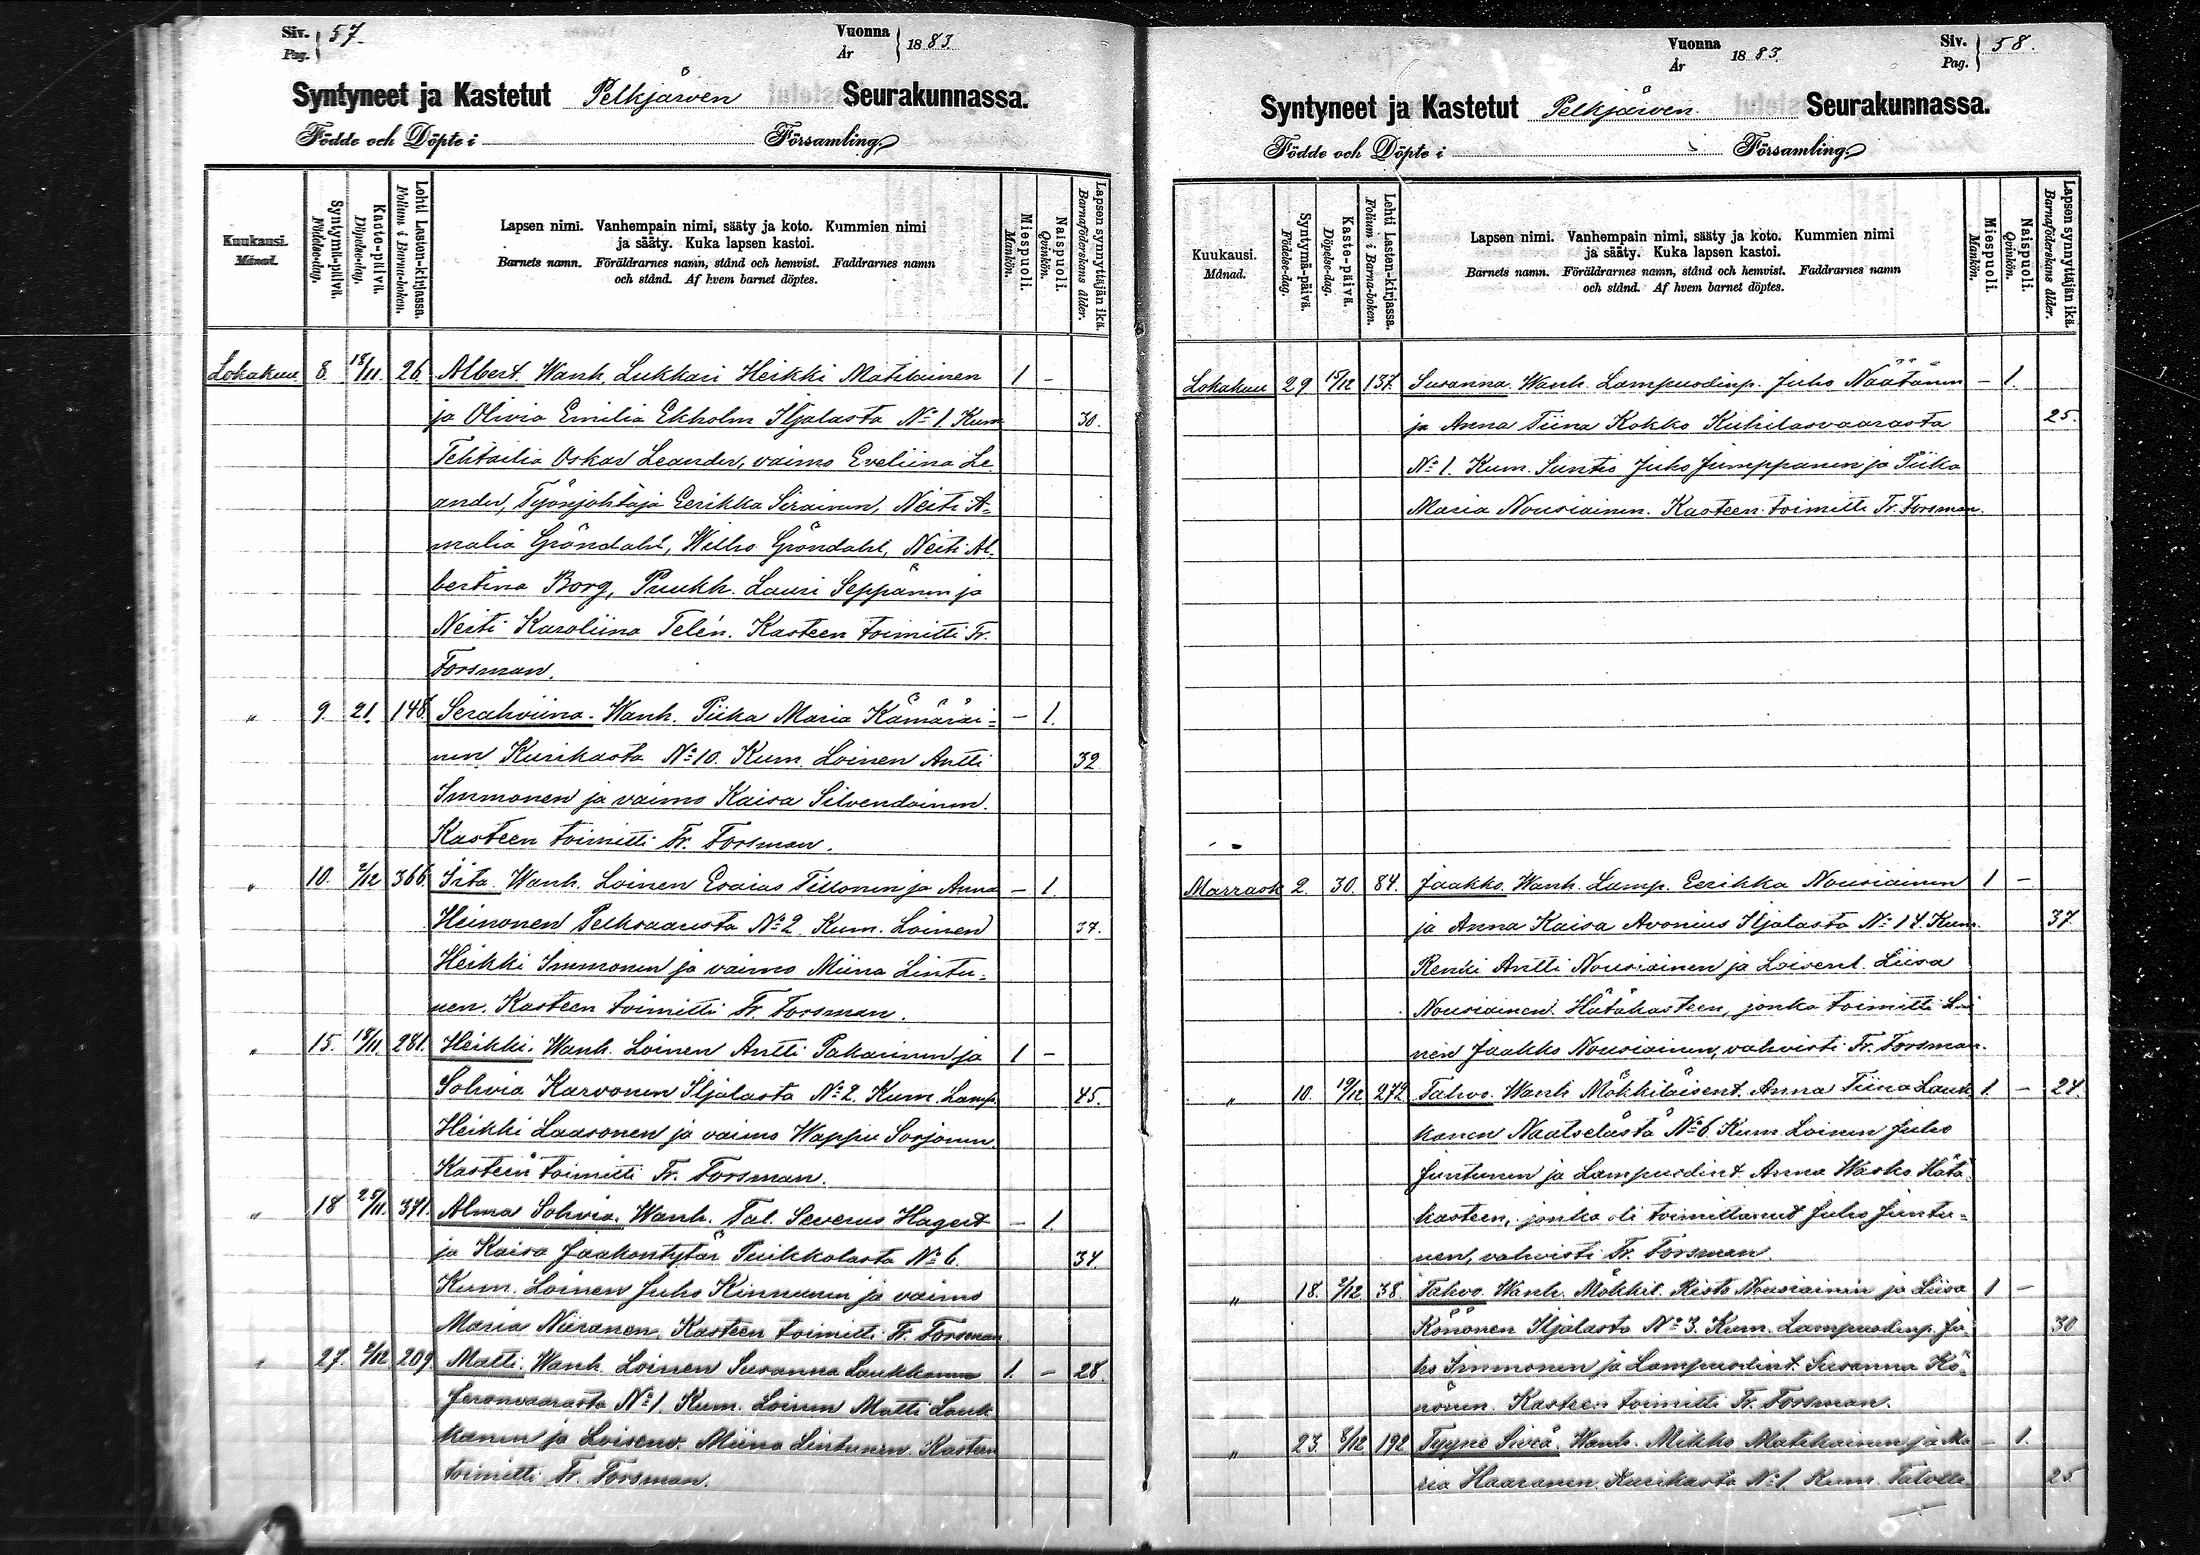 Siv. 57.
Pag.
Vuonna 1883.
År
Syntyneet ja Kastetut Pelkjärven Seurakunnassa.
Födde och Döpte i Församling.
Kuukausi.
Månad.
Syntymä-päivä.
Födelse-dag.
Kaste-päivä.
Döpelse-dag.
Lehti Lasten-kirjassa.
Folium i Barna-boken.
Lapsen nimi. Vanhempain nimi, sääty ja koto. Kummien nimi
ja sääty. Kuka lapsen kastoi.
Barnets namn. Föräldrarnes namn, stånd och hemvist. Faddrarnes namn
och stånd. Af hvem barnet döptes.
Miespuoli.
Mankön.
Naispuoli.
Qvinkön.
Lapsen synnyttäjän ikä.
Barnaföderskans ålder.
Lokakuu 8. 18/11. 26. Albert. Wanh. Lukkari Heikki Matilainen 1 -
ja Olivia Emilia Ekholm Iljalasta No 1 Kum 30.
Tehtailia Oskar Leander, vaimo Eveliina Le
ander, Työnjohtaja Eerikka Sirainen, Neiti A-
malia Gröndahl, Wilho Gröndahl, Neiti Al-
bertina Borg, Puukh. Lauri Seppänen ja
Neiti Karoliina Telén. Kasteen toimitti Fr.
Forsman.
" 9. 21. 148 Serahviina. Wanh. Piika Maria Kämäräi- - 1.
nen Kurikasta No 10. Kum. Loinen Antti 32
Immonen ja vaimo Kaisa Silvendoinen.
Kasteen toimitti Fr. Forsman.
" 10. 2/12 366 Iita. Wanh. Loinen Esaias Tillonen ja Anna - 1.
Heinonen Pelkvaarasta No 2. Kum. Loinen 37.
Heikki Immonen ja vaimo Miina Lintu-
nen. Kasteen toimitti Fr. Forsman.
" 15. 18/11 281. Heikki. Wanh. Loinen Antti Pakarinen ja 1 -
Sohvia Karvonen Iljalasta No 2. Kum. Lamp. 45.
Heikki Laasonen ja vaimo Wappu Sorjonen.
Kasteen toimitti Fr. Forsman.
" 18 25/11. 371. Alma Sohvia. Wanh. Tal. Severus Hagert - 1.
ja Kaisa Jaakontytär Puikkolasta No 6. 34.
Kum. Loinen Juho Kinnunen ja vaimo
Maria Niiranen. Kasteen toimitti Fr. Forsman
" 27. 2/12 209. Matti. Wanh. Loinen Susanna Laukkanen 1. - 28.
Jeronvaarasta No 1. Kum. Loinen Matti Lauk
kanen ja Loisenv. Miina Lintunen. Kasteen
toimitti Fr. Forsman.
Vuonna 1883.
År
Siv. 58.
Pag.
Syntyneet ja Kastetut Pelkjärven. Seurakunnassa.
Födde och Döpte i Församling.
Kuukausi.
Månad.
Syntymä-päivä.
Födelse-dag.
Kaste-päivä.
Döpelse-dag.
Lehti Lasten-kirjassa.
Folium i Barna-boken.
Lapsen nimi. Vanhempain nimi, sääty ja koto. Kummien nimi
ja sääty. Kuka lapsen kastoi.
Barnets namn. Föräldrarnes namn, stånd och hemvist. Faddrarnes namn
och stånd. Af hvem barnet döptes.
Miespuoli.
Mankön.
Naispuoli.
Qvinkön.
Lapsen synnyttäjän ikä.
Barnaföderskans ålder.
Lokakuu 29 15/12 137. Susanna. Wanh. Lampuodinp. Juho Näätänen - 1.
ja Anna Tiina Kokko Kuhilasvaarasta 25.
No 1. Kum. Suntio Juho Jumppanen ja Piika
Maria Nousiainen. Kasteen toimitti Fr. Forsman.
Marrask 2. 30. 84. Jaakko. Wanh. Lamp. Eerikka Nousiainen 1 -
ja Anna Kaisa Avonius Iljalasta No 14. Kum. 37.
Renki Antti Nousiainen ja Loisent. Liisa
Nousiainen. Hätäkasteen, jonka toimitti Loi
nen Jaakko Nousiainen, vahvisti Fr. Forsman.
" 10. 19/12 272 Tahvo. Wanh. Mökkiläisent. Anna Tiina Lauk 1. - 24.
kanen Naatselästä No 6. Kum. Loinen Juho
Juntunen ja Lampuodint. Anna Wasko Hätä-
kasteen, jonka oli toimittanut Juho Juntu-
nen, vahvisti Fr. Forsman.
" 18. 2/12 38. Tahvo. Wanh. Mökkil. Risto Nousiainen ja Liisa 1 -
Könönen Iljalasta No 3. Kum. Lampuodinp. Ju- 30
ho Immonen ja Lampuodint. Susanna Kö-
nönen. Kasteen toimitti Fr. Forsman.
" 23. 8/12 192 Tyyne Siviä. Wanh. Mikko Matikainen ja Ma - 1.
ria Haaranen Kurikasta No 1. Kum. Talolla 25